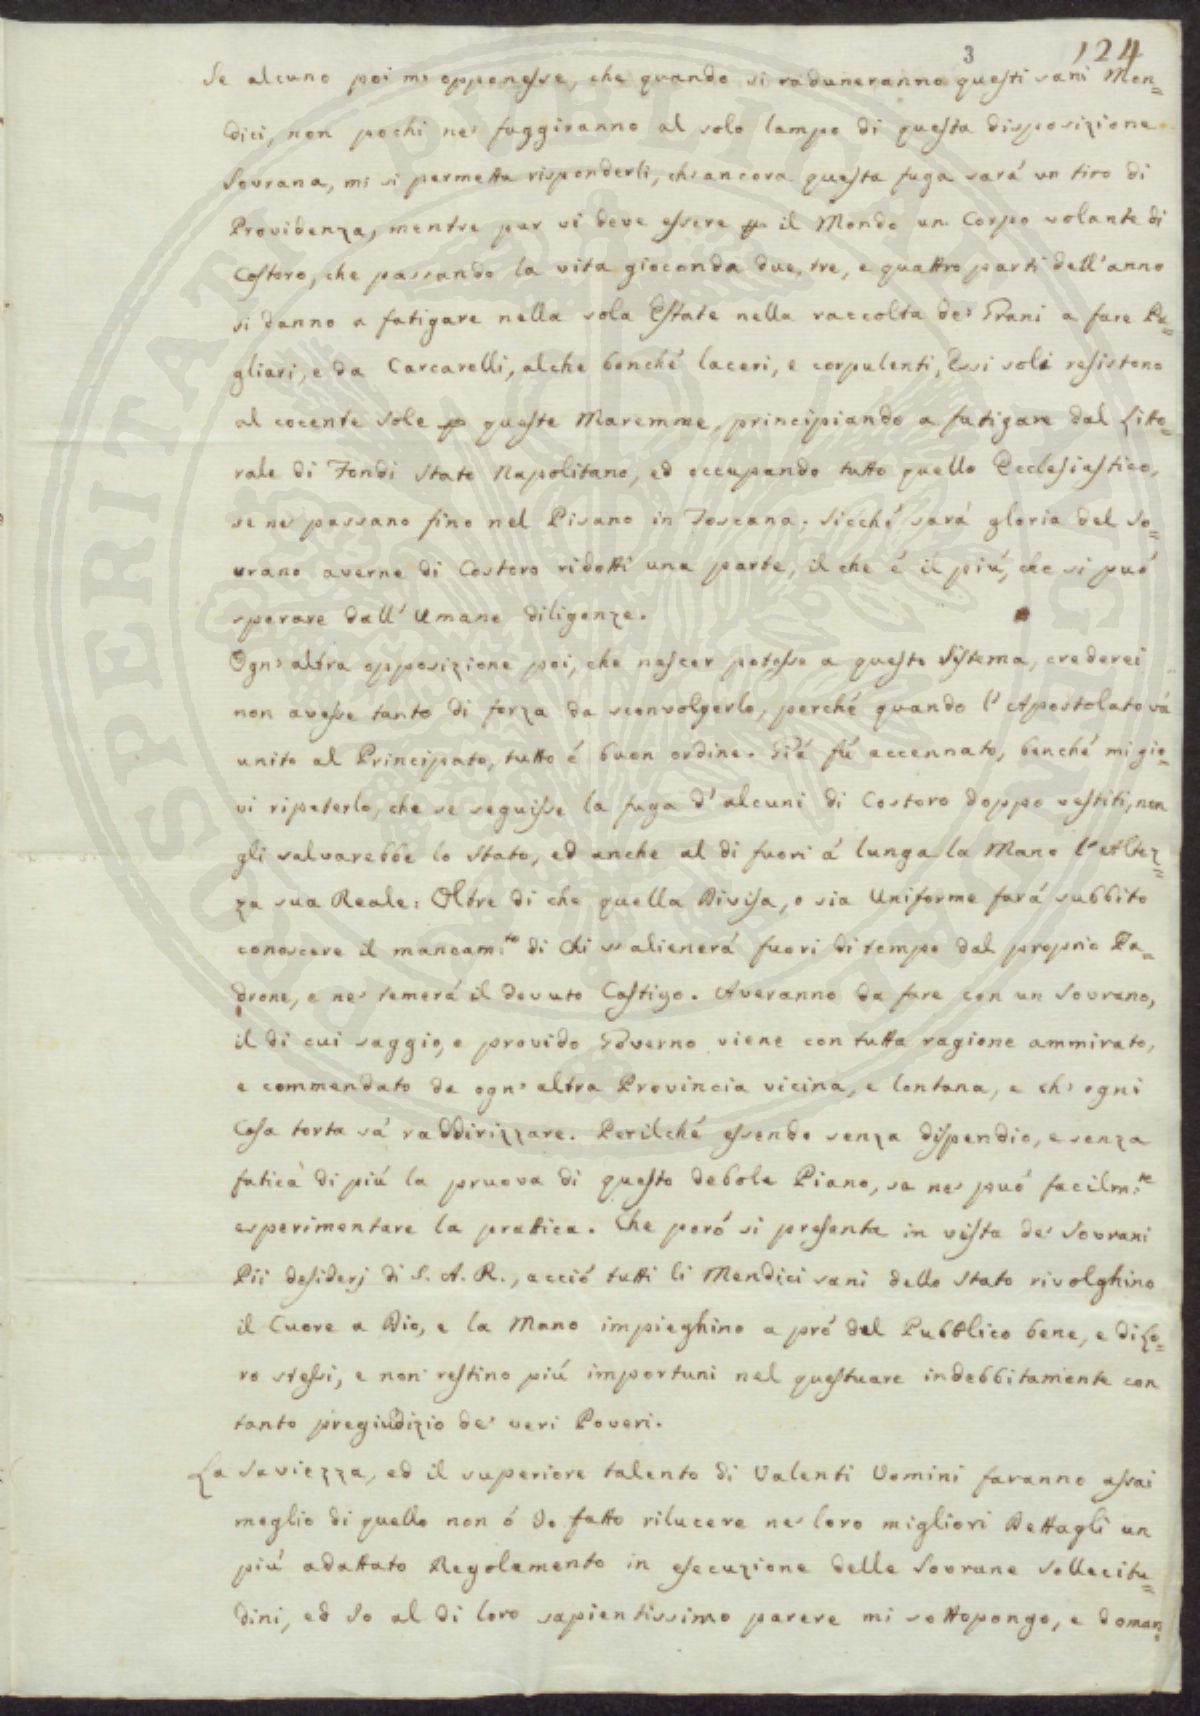 3
124
Se alcuno poi mi opponesse, che quando si raduneranno questi sani Men=
dici, non pochi ne' fuggiranno al solo lampo di questa disposizione
Sovrana, mi si permetta risponderli, ch'ancora questa fuga sará un tiro di
Providenza, mentre pur vi deve essere p il Mondo un Corpo volante di
Costoro, che passando la vita gioconda due, tre, e quattro parti dell'anno
si danno a fatigare nella sola Estate nella raccolta de' Grani a fare Pa=
gliari, e da Carcarelli, alche benché laceri, e corpulenti, Essi soli resistono
al cocente Sole p queste Maremme, principiando a fatigare dal Lito=
rale di Fondi Stato Napolitano, ed occupando tutto quello Ecclesiestico,
se ne' passano fino nel Pisano in Toscana. Sicché sará gloria del So=
vrano averne di Costoro ridotti una parte, il che é il piú, che si puó
sperare dall' Umane diligenze.
Ogn' altra opposizione poi, che nascer potesse a questo Sistema, crederei
non avesse tanto di forza da sconvolgerlo, perché quando l'Apostolato vá
unito al Principato, tutto é buon ordine. Giá fú accennato, benché mi gio=
vi ripeterlo, che se seguisse la fuga d'alcuni di Costoro doppo vestiti, non
gli salvarebbe lo Stato, ed anche al di fuori á lunga la Mano l'Altez=
za sua Reale: Oltre di che quella Divisa, o sia Uniforme fará subbito
conoscere il mancam:to di Chi s' alienerá fuori di tempo dal proprio Pa=
drone, e ne' temerá il dovuto Castigo. Averanno da fare con un Sovrano,
il di cui saggio, e provido Governo viene con tutta ragione ammirato,
e commendato da ogn' altra Provincia vicina, e lontana, e ch' ogni
Cosa torta sá raddirizzare. Perilché essendo senza dispendio, e senza
fatica di piú la pruova di questo debole Piano, sa ne' puó facilm:te
esperimentare la prattica. Che peró si presenta in vista de' Sovrani
Pii desiderj di S. A. R., acció tutti li Mendici sani dello Stato rivolghino
il Cuore a Dio, e la Mano impieghino a pró del Pubblico bene, e di Lo=
ro stessi, e non restino piú importuni nel questuare indebbitamente con
tanto pregiudizio de' veri Poveri.
La Saviezza, ed il superiore talento di Valenti Uomini faranno assai
meglio di quello non ó Io fatto rilucere ne' loro migliori Dettagli un
piú adattato Regolamento in esecuzione delle Sovrane Sollecitu=
dini, ed Io al di loro sapientissimo parere mi sottopongo, e doman